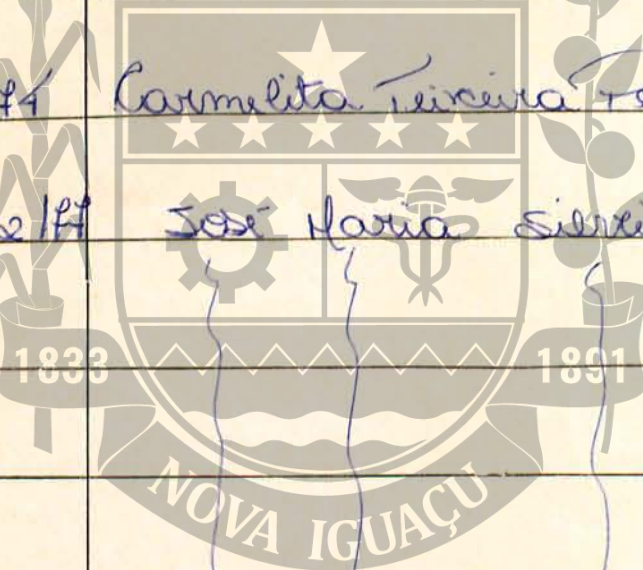 74 Carmelita Teixeira
2/77 José Maria
1833 1891
NOVA IGUAÇU